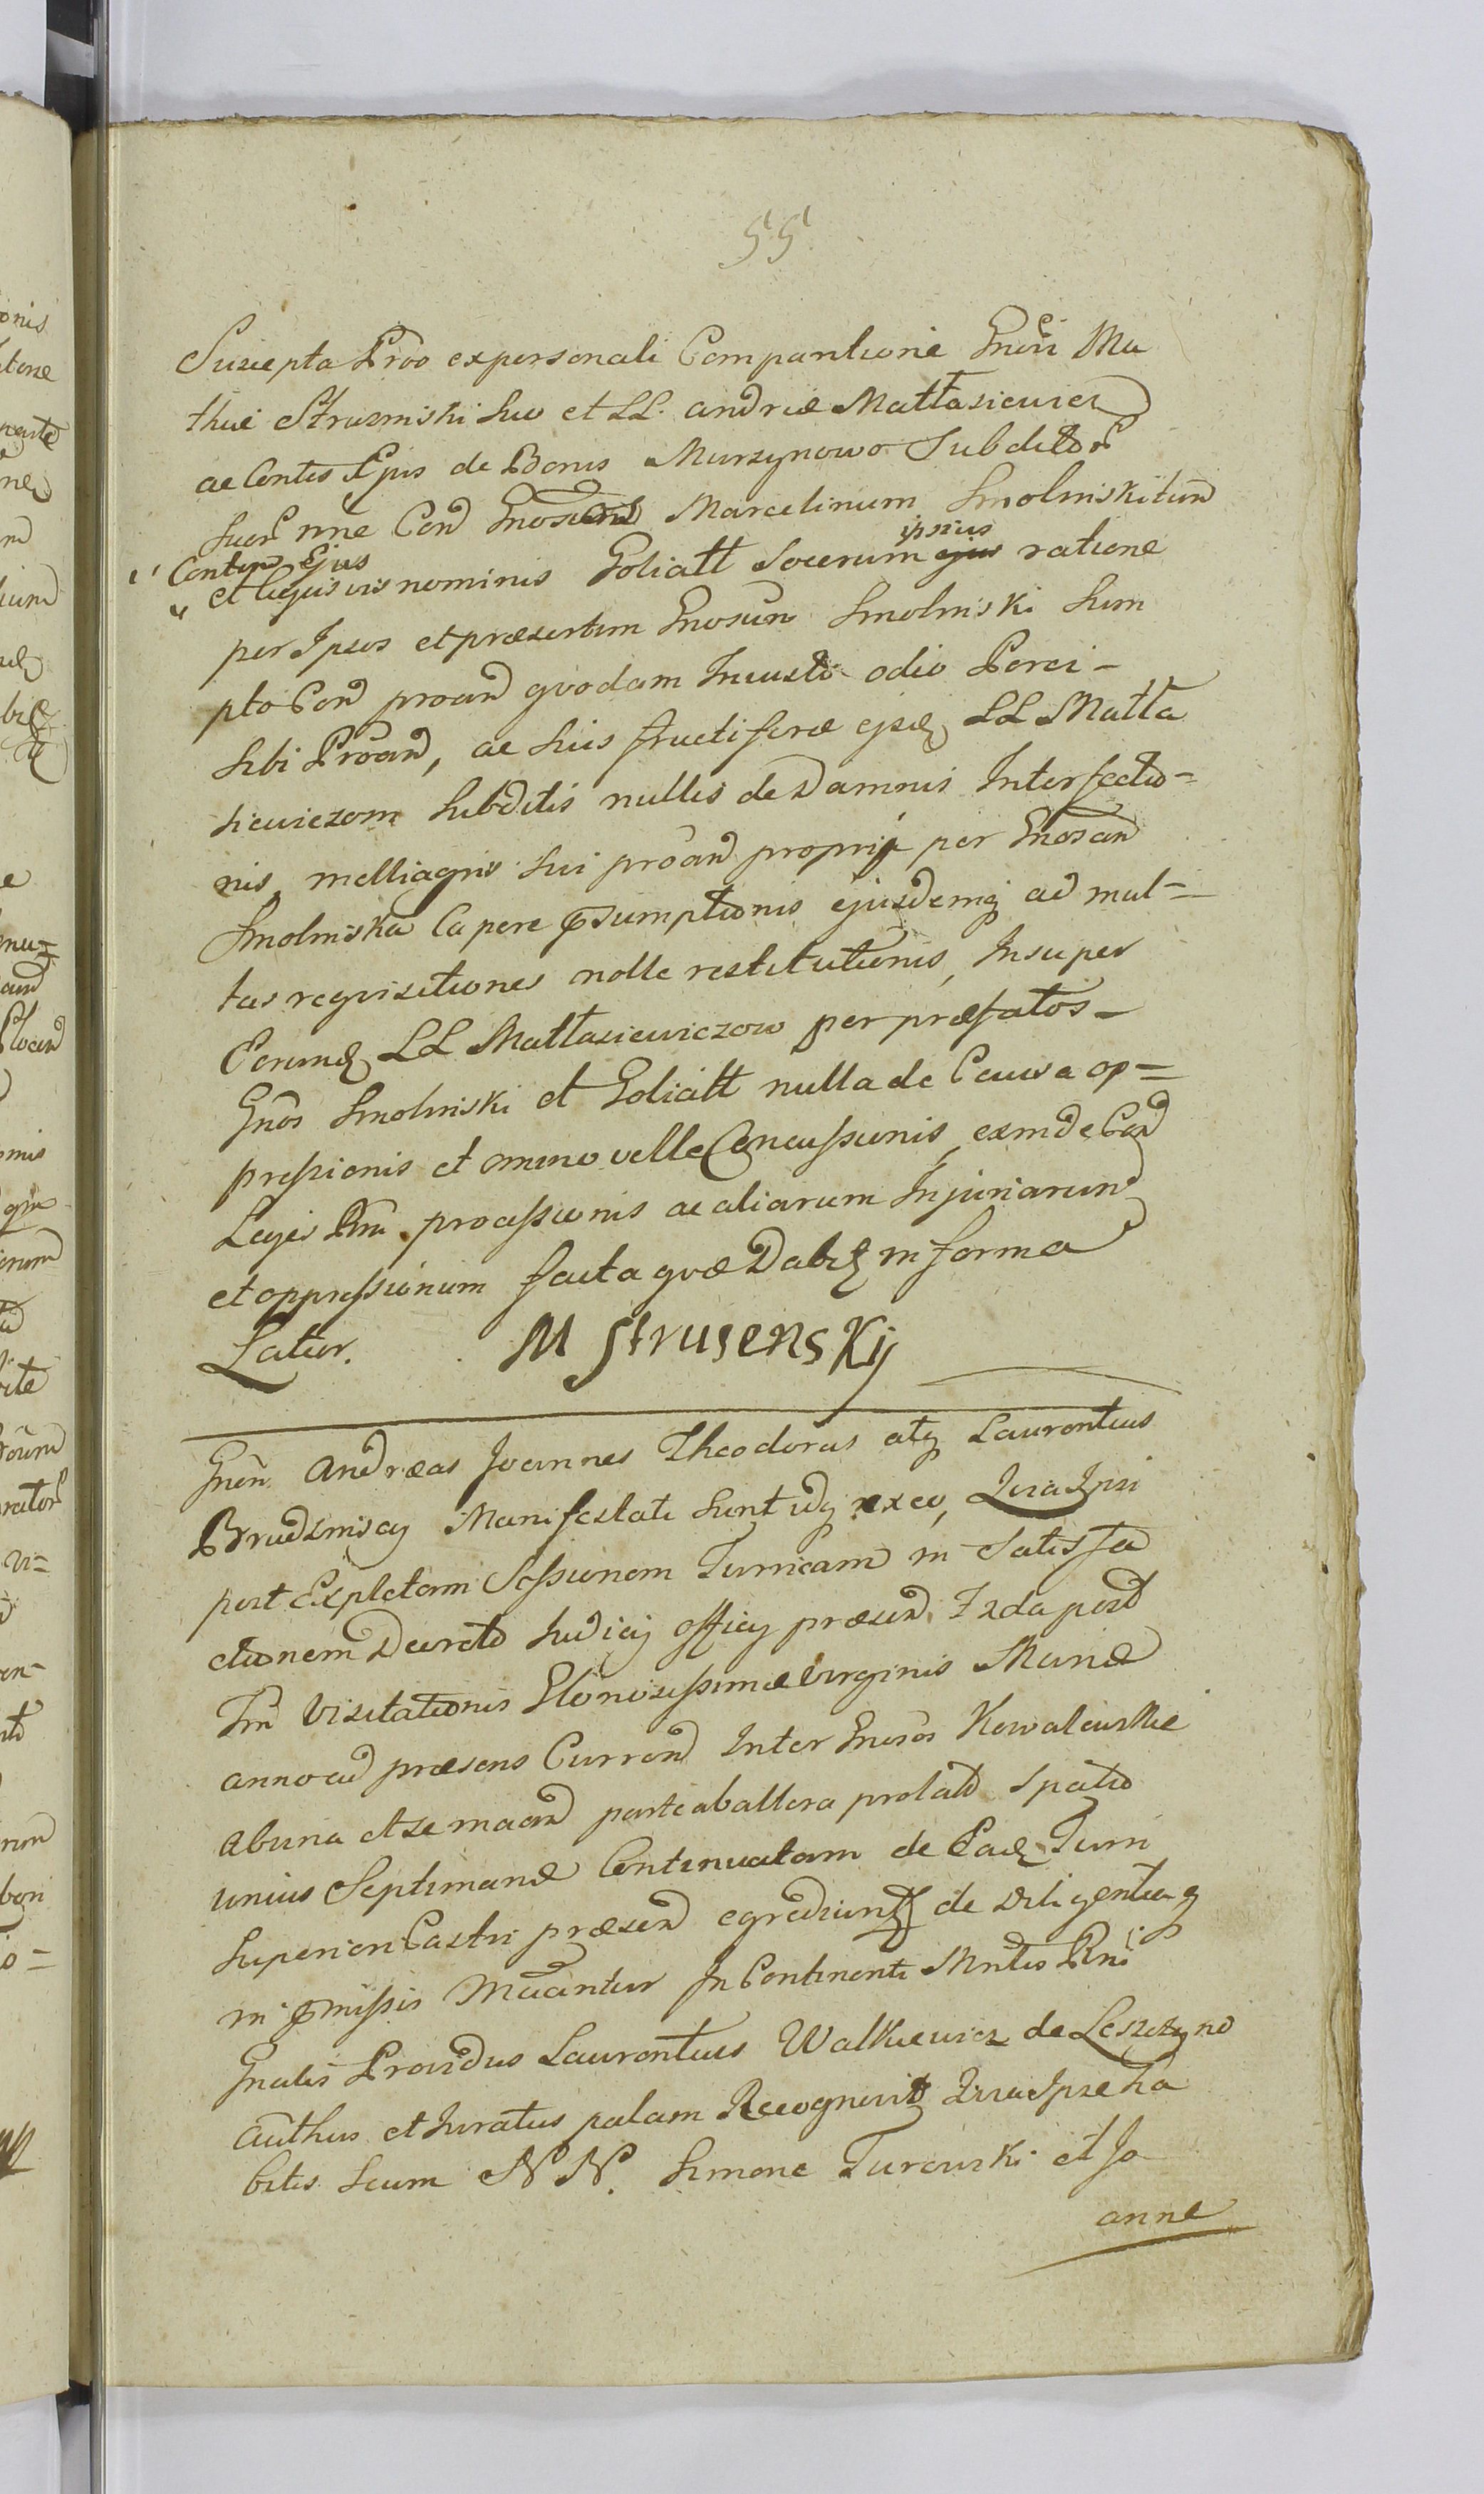 55
Suscepta Proo expersonali Comparitione Gnosi Ma
thiæ Struzinski Suo et LL. andriæ Mattasiewicz
ac Contis Ejus de Bonis Murzynowo Subditor
Suor nne Con Gnosum Marcelinum Smolinski tum
Contem Ejus
et cujusvis nominis Goliatt Socerum ejus ipsius ratione
per Ipsos et præsertim Gnosum Smolinski Sum
pto Con proand quodam Injusto odio Perci-
sibi Proand, ac suis fructifere ejsd LL Matta
siewiczom Subditis nullis de Damnis Interfectio=
nis melliagris sui proand proprij per Gnosam
Smolinska Capere præsumptionis ejusdemq ad mul=
tas requisitiones nolle restitutionis, Insuper
Eorumd LL Mattasiewiczow per præfatos-
Gnos Smolinski et Goliatt nulla de Causa op=
pressionis et omnino velle Concussionis, exinde Con
Leges Rni processionis ac aliarum Injuriarum
et oppressionum facta quæ Dabit in forma
Latior. M Strusenskij
Gnosi Andreas Joannes Theodorus atq Laurentius
Brudzinscy Manifestati Sunt idq ex eo, Quia Ipsi
post Expletam Sessionem Turricam in Satisfa
ctionem Decreto Judicij officij præsen Fzda post
Fm Visitationis Gloriosissimæ Virginis Mariæ
anno ad præsens Curren Inter Gnosos Kowalewskie
ab una et se maand parte ab altera prolato Spatio
unius Septimanæ Continuatam de Ead Turri
Superiori Castri præsen egrediunt de Diligentiaq
in præmissis Maantur In Continenti Mntis Rni
Gnalis Providus Laurentius Walkiewicz de Leszczyno
authus et Juratus palam Recognovit Quia Ipse ha
bitis Secum NN. Simone Turowski et Jo
anne